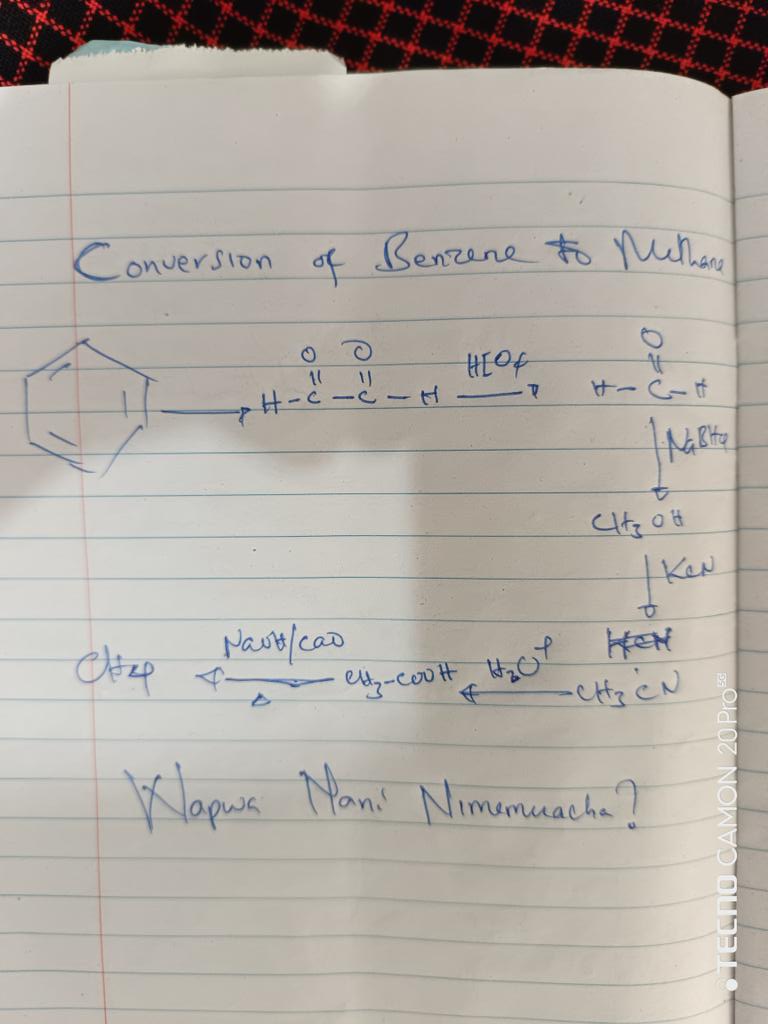 Conversion of Benzene to Methane
O O
H-C-C-H
HIO4
O
H-C-H
NaBH4
CH3OH
KCN
HCH
CH3CN
H3O+
CH3-COOH
NaOH/CaO
Δ
CH4
Wapwa Nani Nimemuacha?
TECNO CAMON 20 Pro 5G